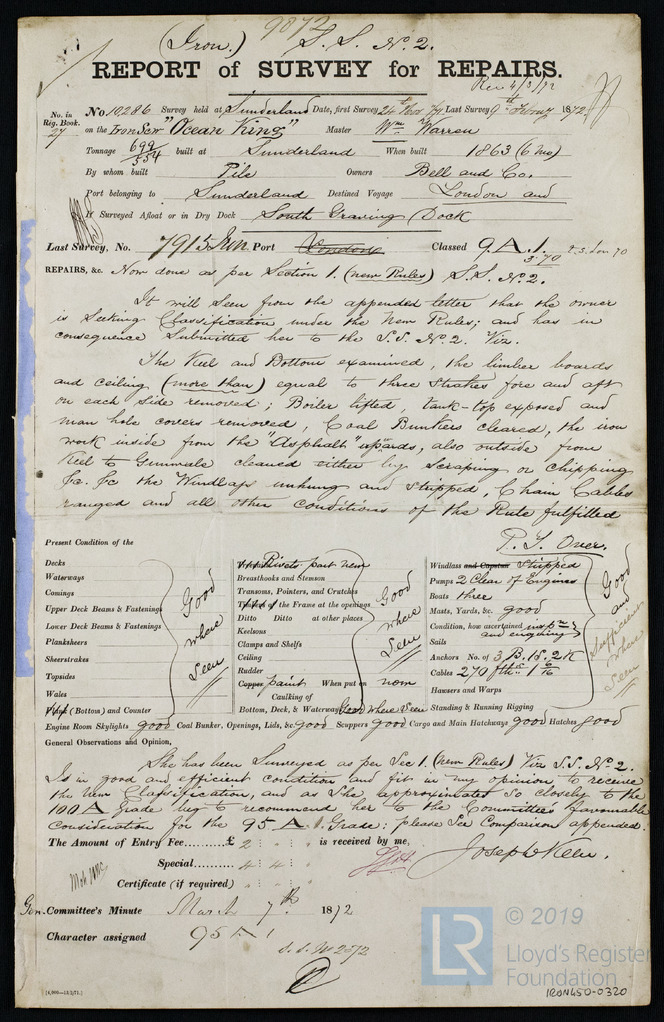 (Iron.) 9872 S.S. No 2.
REPORT of SURVEY for REPAIRS.
Rec 4/3/72
No. in Reg. Book. 27
No 10286 Survey held at Sunderland Date, first Survey 24th Nov 71 Last Survey 9th 1872
on the Iron Scw "Ocean King" Master Wm Warren
Tonnage 699/554 built at Sunderland When built 1863 (6 mo)
By whom built Pile Owners Bell and Co.
Port belonging to Sunderland Destined Voyage London and
If Surveyed Afloat or in Dry Dock South Graving Dock
Last Survey, No. 7915 Port London Classed 9. A. 1. 5.70
REPAIRS, &c. Now done as per Section 1. (new Rules) S.S. No. 2.
It will seen from the appended letter that the owner
is Seeking Classification under the New Rules; and has in
consequence Submitted her to the S.S. No. 2. Viz.
The Keel and Bottom examined, the limber boards
and ceiling (more than) equal to three Strakes fore and aft
on each side removed; Boiler lifted, tank-top exposed and
man hole covers removed, Coal Bunkers cleared, the iron
work inside from the "Asphalt" upards, also outside from
Keel to Gunwale cleaned either by Scraping or chipping
&c. &c the Windlass unhung and stripped, Chain Cables
ranged and all other conditions of the Rule fulfilled
P.T. Over.
Present Condition of the
Decks
Waterways
Comings
Upper Deck Beams & Fastenings
Lower Deck Beams & Fastenings
Planksheers
Sheerstrakes
Topsides
Wales
(Bottom) and Counter
Good where Seen
Rivets part new
Breasthooks and Stemson
Transoms, Pointers, and Crutches
of the Frame at the openings
Ditto Ditto at other places
Keelsons
Clamps and Shelfs
Ceiling
Rudder
Copper paint When put on now
Caulking of
Bottom, Deck, & Waterways Good where Seen
Good where Seen
Windlass and Capstan Stripped
Pumps 2 Clear of Engines
Boats three
Masts, Yards, &c. good
Condition, how ascertained inspn and enquiring
Sails
Anchors No. of 3 B. 1S. 2K
Cables 270 fths 1 6/16
Hawsers and Warps
Standing & Running Rigging
Good and Sufficient where Seen
Engine Room Skylights good Coal Bunker, Openings, Lids, &c. good Scuppers good Cargo and Main Hatchways good Hatches good
General Observations and Opinion,
She has been Surveyed as per Sec 1. (new Rules) Viz S.S. No. 2.
Is in good and efficient condition and fit in my opinion to receive
the New Classification, and as She approximates so closely to the
100 A Grade beg to recommend her to the Committee's favourable
consideration for the 95 A. 1. Grade; please See Comparison appended.
The Amount of Entry Fee........£ 2 : : is received by me,
Special ...... 4 : 4 : Joseph Keen.
Certificate (if required)
Committee's Minute March 7th 1872
Character assigned 95 A 1
S.S. No 2 2/72
© 2019
LR
Lloyd's Register
Foundation
IRON450-0320